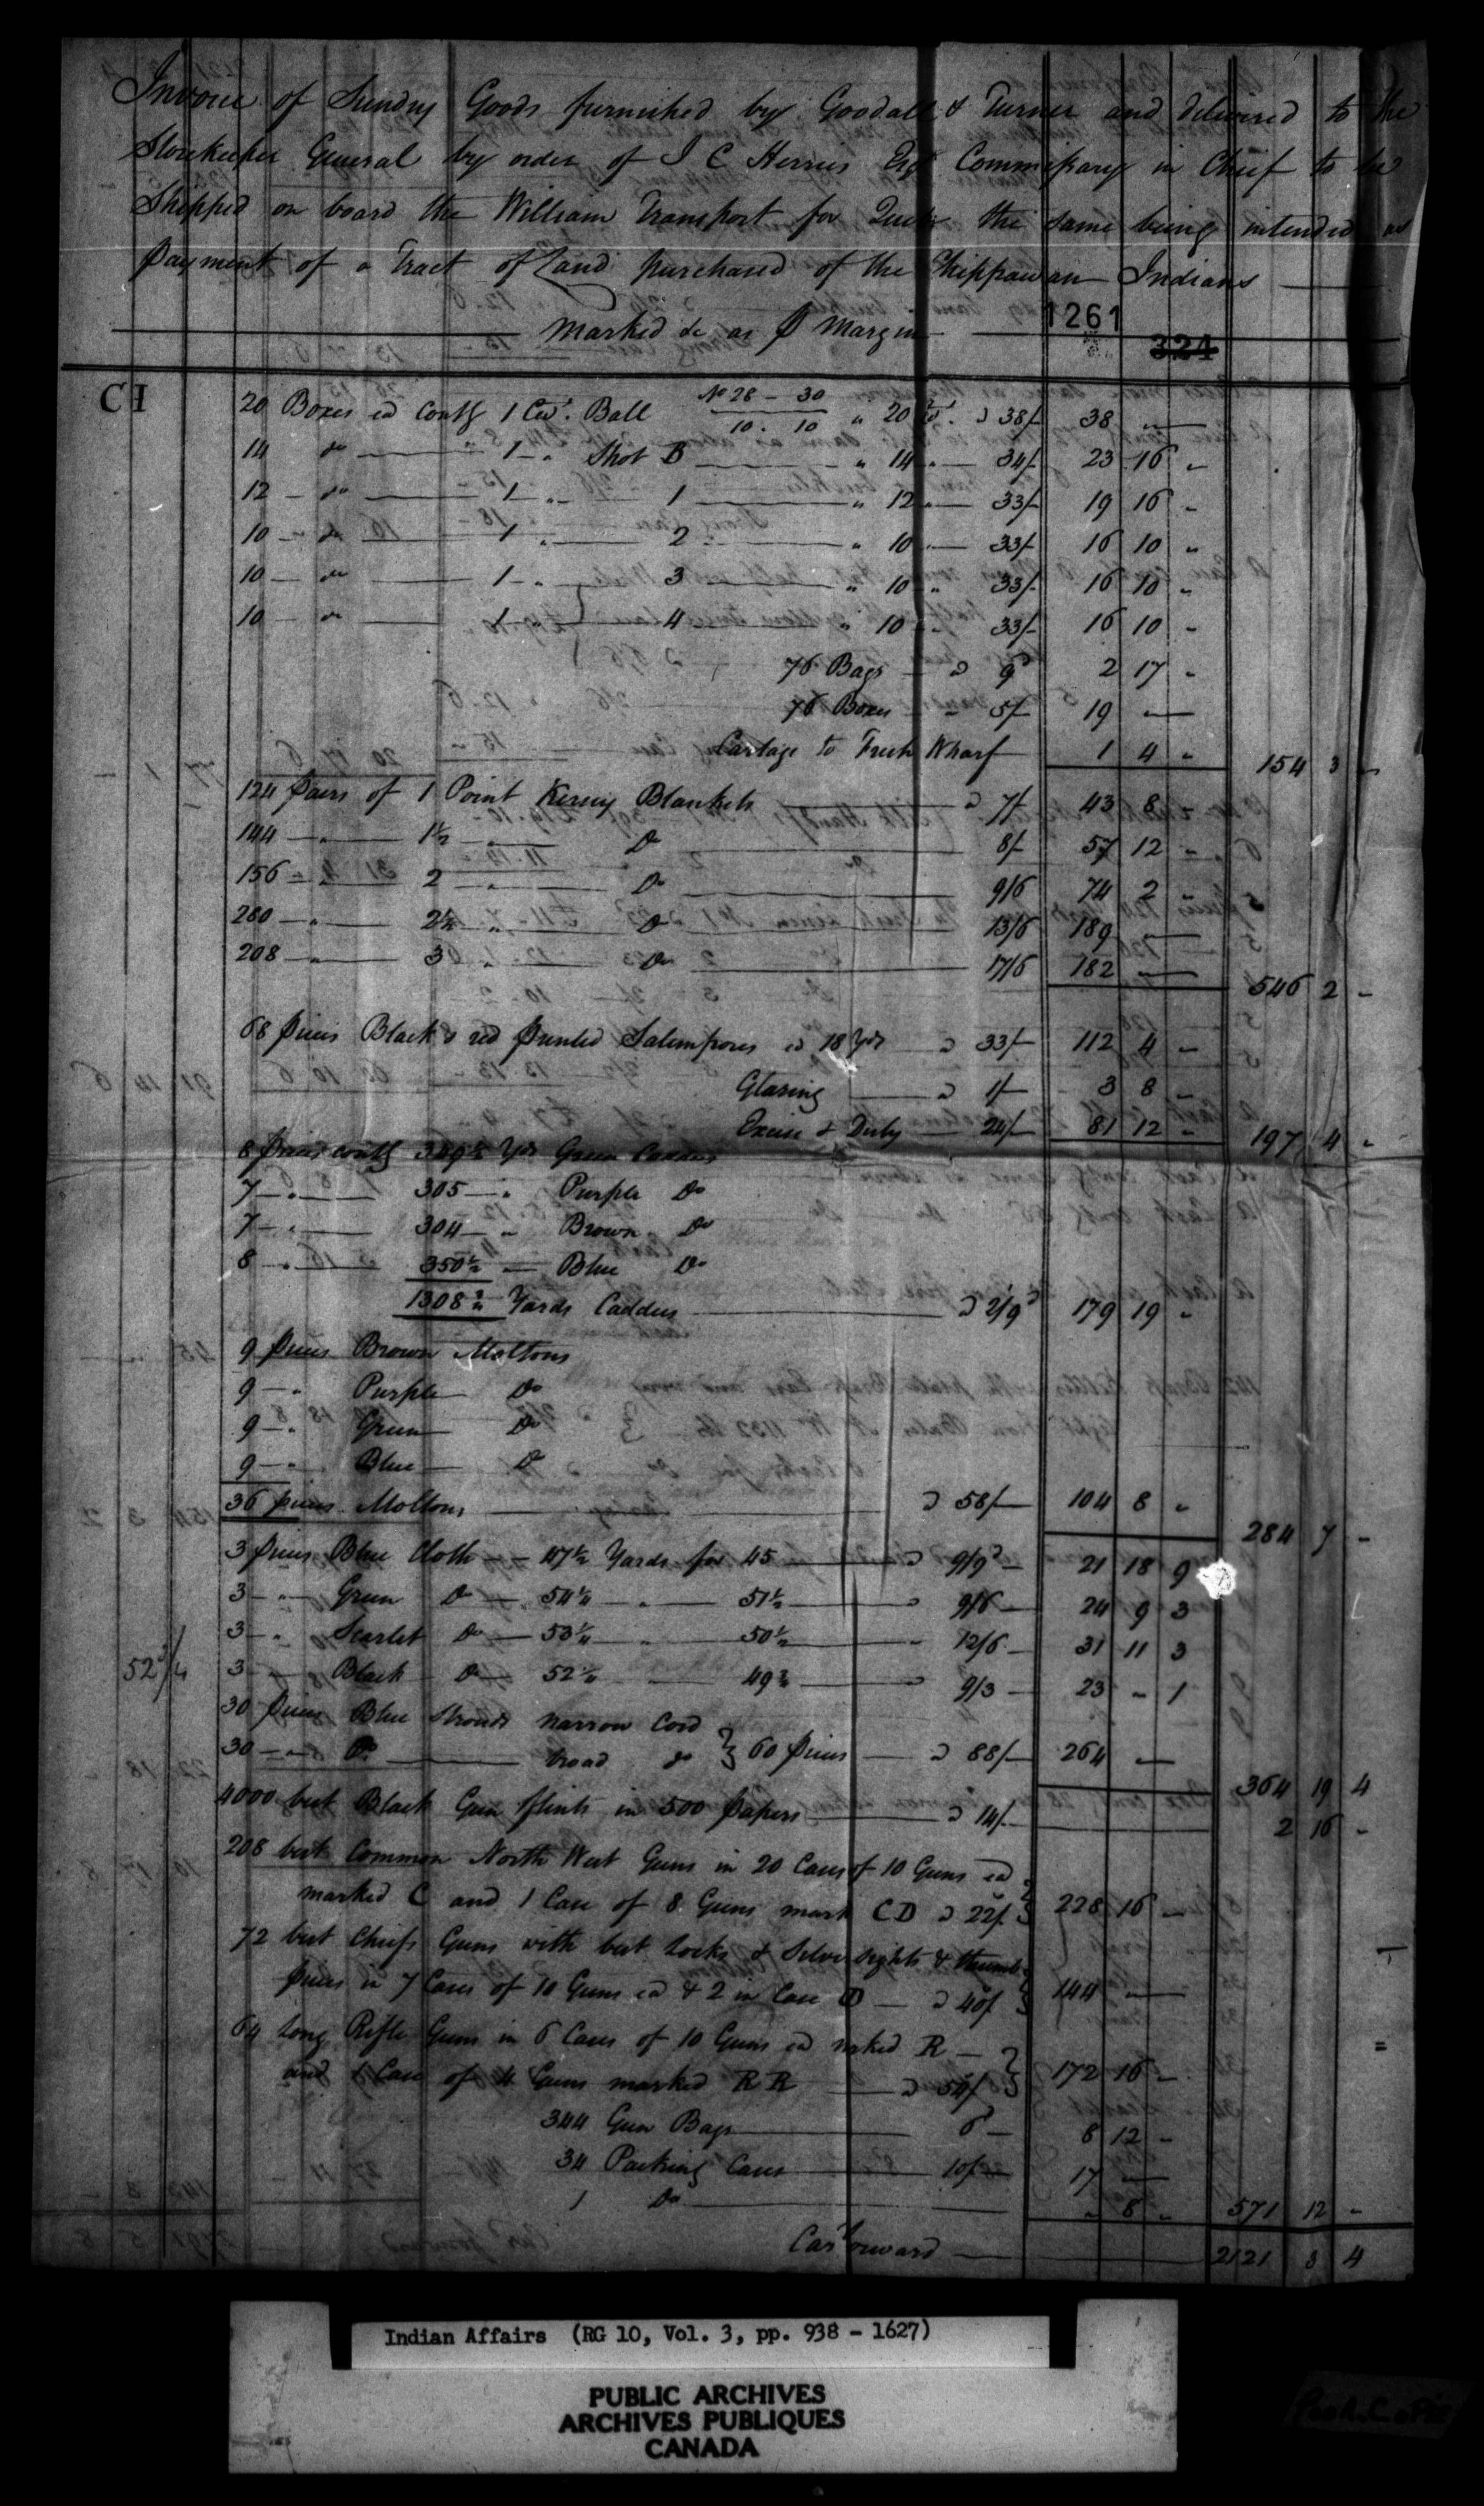 Invoice of Sundry Goods furnished by Goodall & Turner and delivered to the
Storekeeper General by order of J C Herries Esqr Commissary in Chief to be
Shipped on board the William Transport for Quebec the same being intended as
Payment of a Tract of Land purchased of the Chippawan Indians
Marked &c as P Margin
1261
324
CI
20 Boxes ea contg 1 Cwt. Ball No 28 - 30 / 10 . 10 " 20 a 38/- 38 " —
14 do 1 " Shot B " 14 " 34/- 23 16 "
12 do 1 " 1 " 12 " 33/- 19 16 "
10 do 1 " 2 " 10 " 33/- 16 10 "
10 do 1 " 3 " 10 " 33/- 16 10 "
10 do 1 " 4 " 10 " 33/- 16 10 "
76 Bags a 9d 2 17 "
76 Boxes " 5/- 19 —
Cartage to Fresh Wharf 1 4 " 154 3 "
124 Pairs of 1 Point Kersey Blankets a 7/- 43 8 "
144 " 1½ " Do 8/- 57 12 "
156 " 2 " Do 9/6 74 2 "
280 " 2½ " Do 13/6 189 —
208 " 3 " Do 17/6 182 — 546 2 "
68 Pieces Black & red Printed Salempores ea 18 Yds a 33/- 112 4 "
Glazing a 1/- 3 8 "
Excise & Duty 24/- 81 12 " 197 4 "
8 Pieces contg 349½ Yds Green Caddus
7 " 305 " Purple Do
7 " 304 " Brown Do
8 " 350¼ Blue Do
1308¾ Yards Caddus a 2/9d 179 19 "
9 Pieces Brown Moltons
9 " Purple Do
9 " Green Do
9 " Blue Do
36 pieces Moltons a 58/- 104 8 " 284 7 "
3 Pieces Blue Cloth 47½ Yards for 45 a 9/9d 21 18 9
3 " Green Do 54¼ " 51½ " 9/6 24 9 3
3 " Scarlet Do 53¼ " 50½ " 12/6 31 11 3
52¾ 3 " Black Do 52¼ 49¾ " 9/3 23 " 1
30 Pieces Blue Strouds narrow Cord
30 " Do broad do } 60 Pieces a 88/- 264 — 364 19 4
4000 best Black Gun flints in 500 Papers a 14/- 2 16 "
208 best Common North West Guns in 20 Cases of 10 Guns ea
marked C and 1 Case of 8 Guns mark CD a 22/- } 228 16 "
72 best Chiefs Guns with best Locks & Silver sights & thumb
pieces in 7 Cases of 10 Guns ea & 2 in Case D a 40/- } 144 —
64 Long Rifle Guns in 6 Cases of 10 Guns ea mrked R
and 1 Case of 4 Guns marked RR a 54/- } 172 16 "
344 Gun Bags 6d 8 12 "
34 Packing Cases 10/- 17 —
1 Do " 8 " 571 12 "
Card forward 2121 3 4
Indian Affairs (RG 10, Vol. 3, pp. 938 - 1627)
PUBLIC ARCHIVES
ARCHIVES PUBLIQUES
CANADA